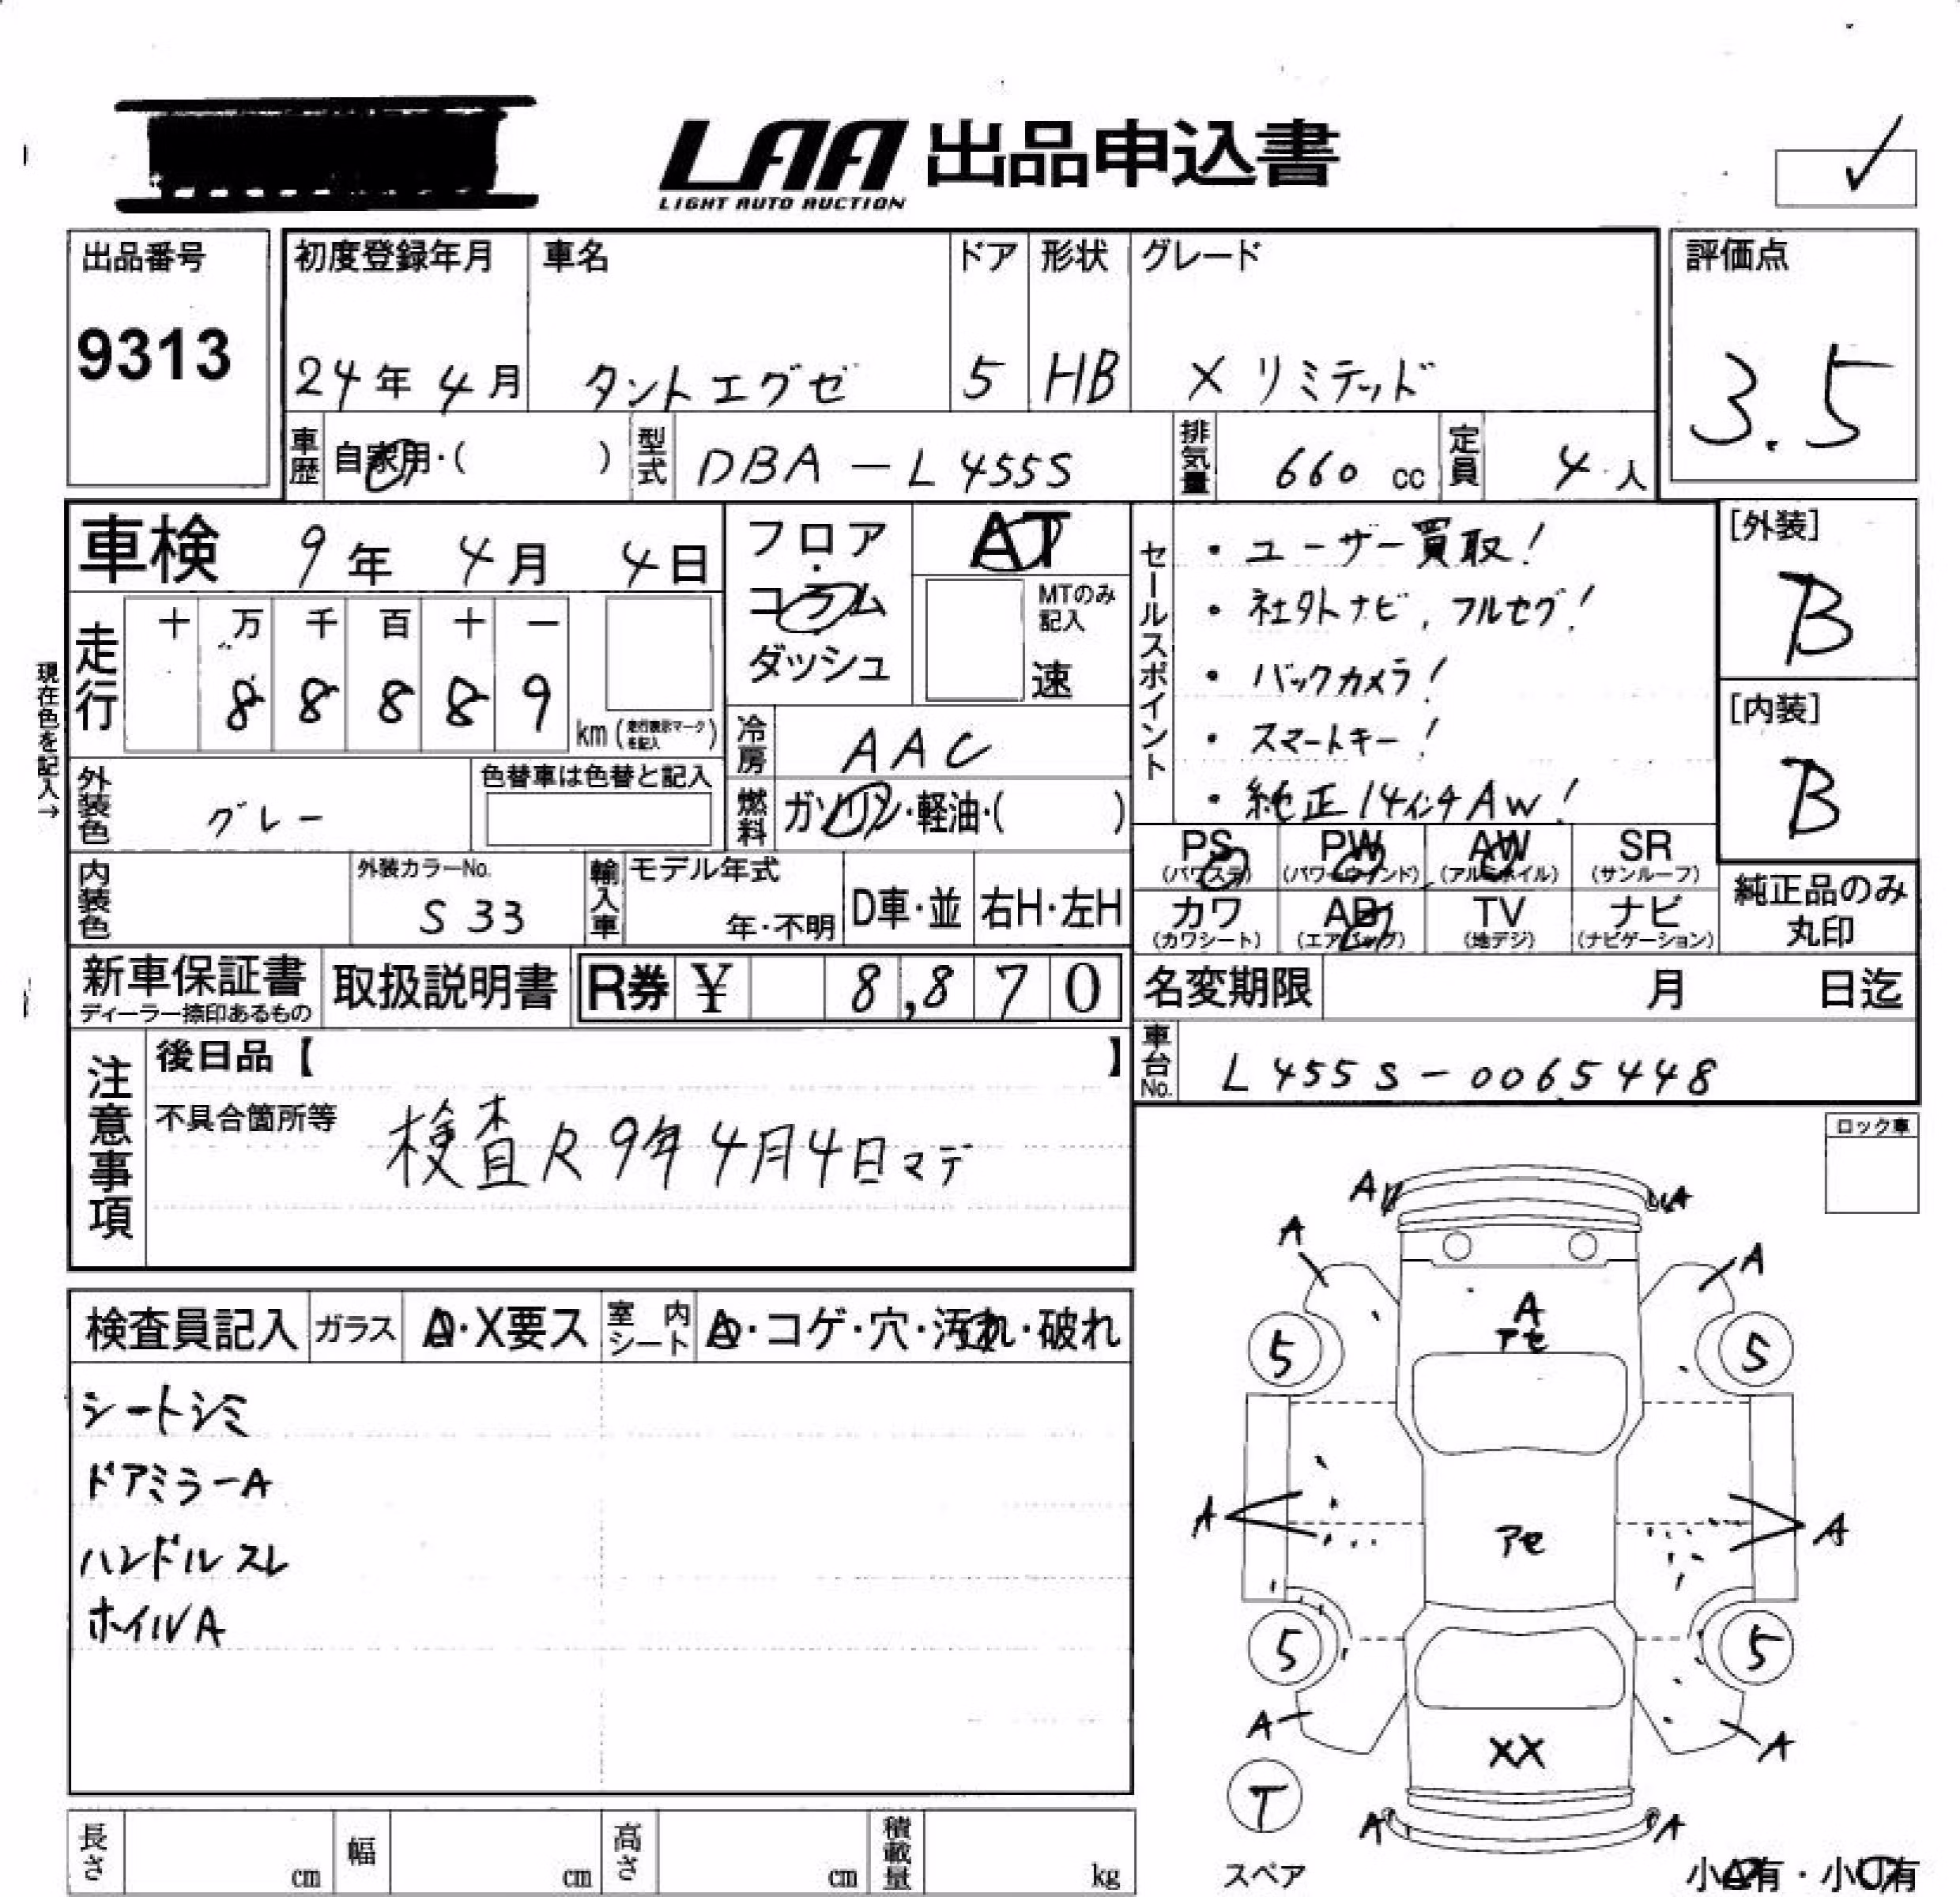 LAA 出品申込書
LIGHT AUTO AUCTION
出品番号
9313
初度登録年月 車名 ドア 形状 グレード
24年 4月 タントエグゼ 5 HB X リミテッド
評価点
3.5
車歴 自家用・( ) 型式 DBA-L455S 排気量 660 cc 定員 4人
車検 9年 4月 4日
フロア・コラム
ダッシュ
AT
MTのみ
記入
速
セールスポイント
・ユーザー買取!
・社外ナビ、フルセグ!
・バックカメラ!
・スマートキー!
・純正14インチAW!
[外装]
B
[内装]
B
現在色を記入→
走行 十 万 千 百 十 一
8 8 8 8 9 km (走行表示マークを記入)
冷房 AAC
燃料 ガソリン・軽油・( )
外装色 グレー 色替車は色替と記入
内装色 外装カラーNo. S33
輸入車 モデル年式 年・不明 D車・並 右H・左H
PS PW AW SR
(パワステ) (パワーウインド) (アルミホイル) (サンルーフ)
カワ AB TV ナビ
(カワシート) (エアバッグ) (地デジ) (ナビゲーション)
純正品のみ
丸印
新車保証書
ディーラー捺印あるもの
取扱説明書 R券 ¥ 8,870
名変期限 月 日迄
車台No. L455S-0065448
注意事項
後日品【 】
不具合箇所等 検査R9年4月4日マデ
ロック車
検査員記入 ガラス A・X要ス 室内シート A・コゲ・穴・汚れ・破れ
シートシミ
ドアミラーA
ハンドルスレ
ホイルA
A A
A A
A
アセ
5 5
A アセ A
5 5
A XX A
T
スペア
A A
小A有・小U有
長さ cm 幅 cm 高さ cm 積載量 kg